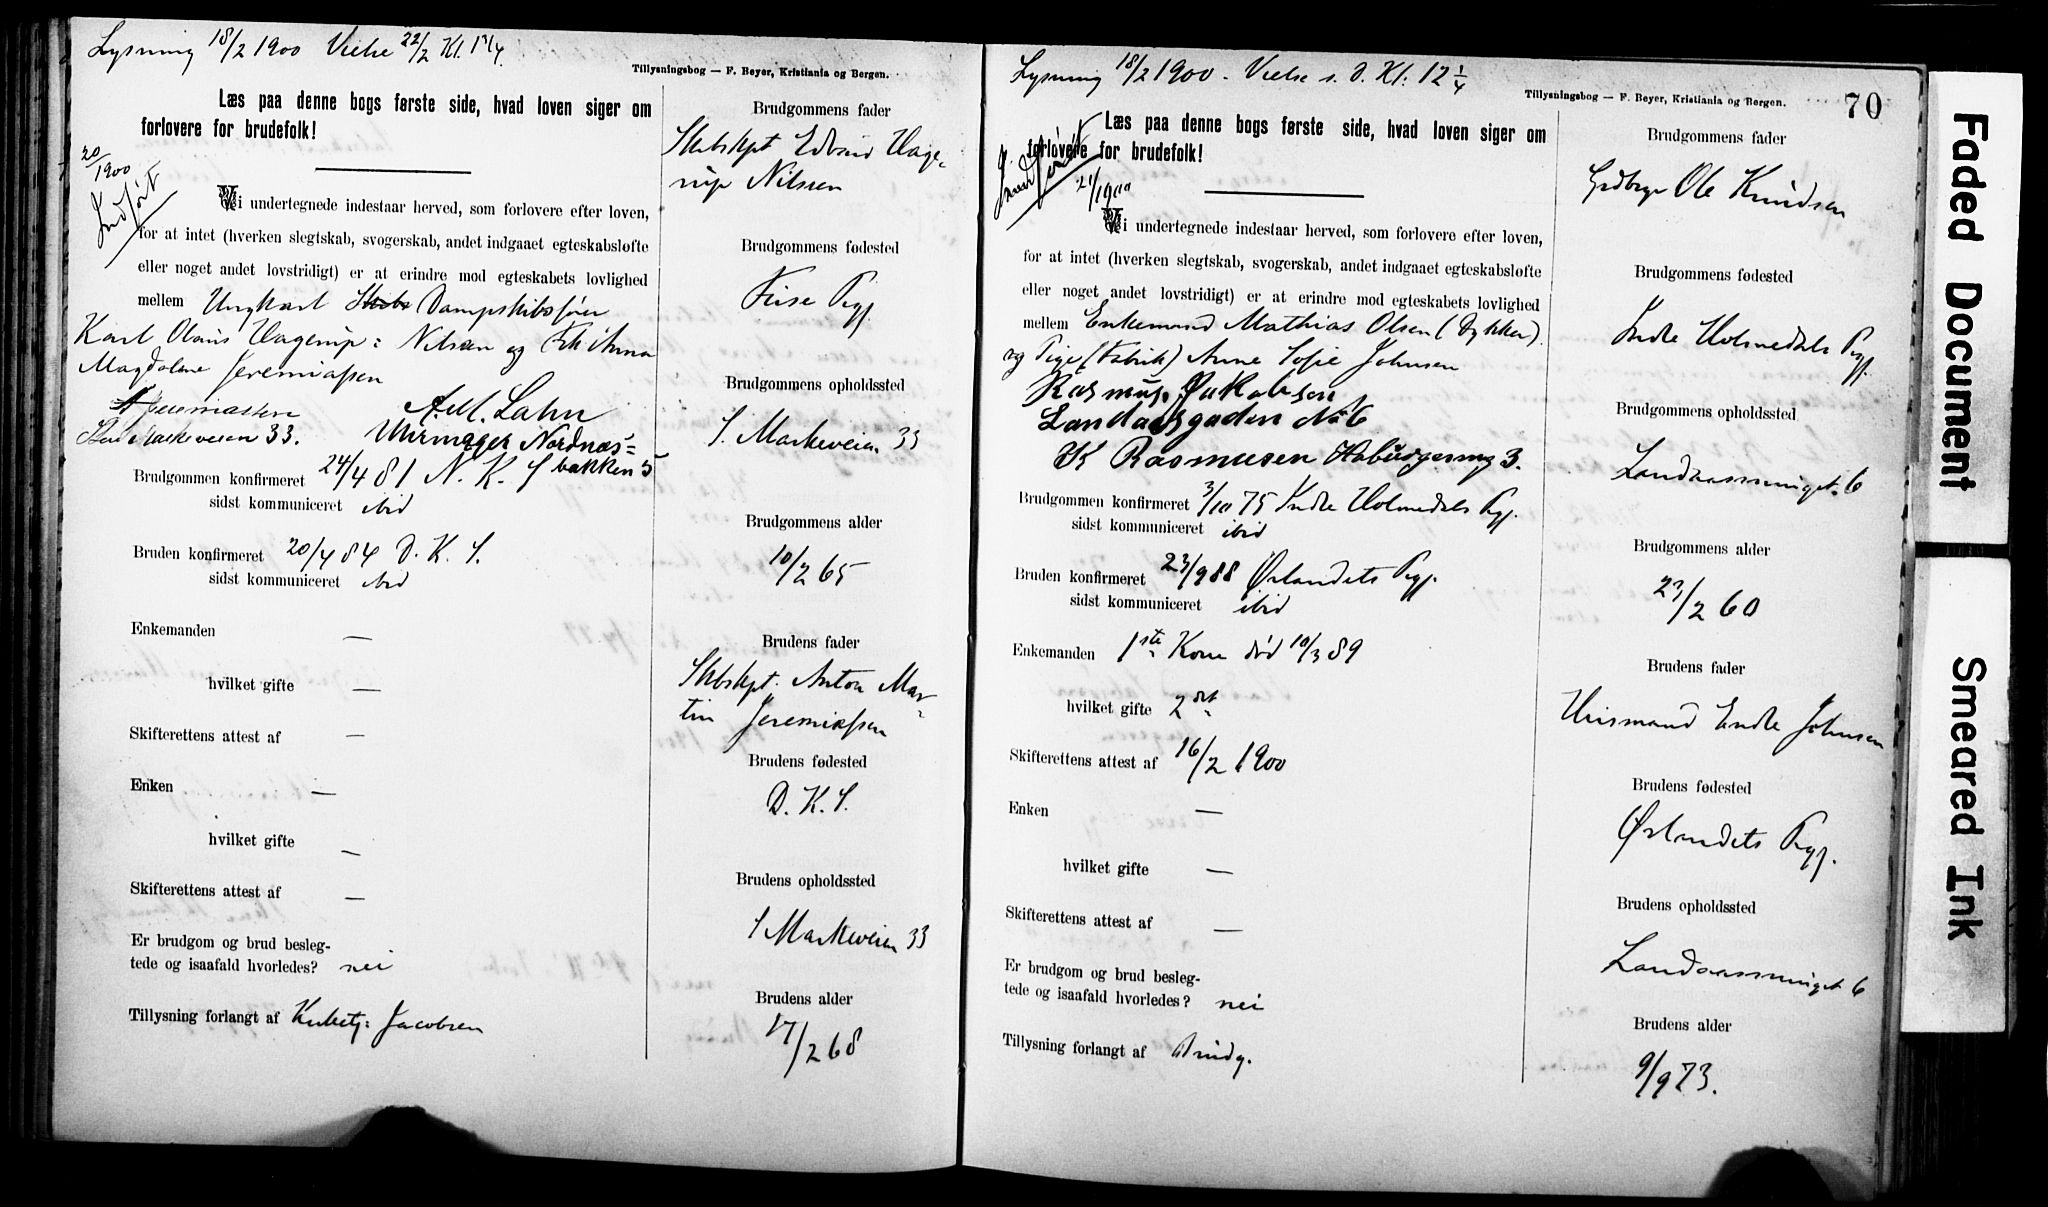 Lysning 18/2 1900 Vielse 22/2 Kl. 1 3/4.
Tillysningsbog — F. Beyer, Kristiania og Bergen.
Læs paa denne bogs første side, hvad loven siger om
forlovere for brudefolk!
20/1900
Indført
Vi undertegnede indestaar herved, som forlovere efter loven,
for at intet (hverken slegtskab, svogerskab, andet indgaaet egteskabsløfte
eller noget andet lovstridigt) er at erindre mod egteskabets lovlighed
mellem Ungkarl Dampskibsfører
Karl Olaus Hagerup: Nilsen og Frk: Anna
Magdalene Jeremiassen
Jeremiassen A.M. Lahn
Markeveien 33. Uhrmager Nordnæs=
bakken 5
Brudgommen konfirmeret 24/4 81 N. K. S
sidst kommuniceret ibid
Bruden konfirmeret 20/4 84 D. K. S.
sidst kommuniceret ibid
Enkemanden —
hvilket gifte —
Skifterettens attest af —
Enken —
hvilket gifte —
Skifterettens attest af —
Er brudgom og brud besleg-
tede og isaafald hvorledes? nei
Tillysning forlangt af Jacobsen
Brudgommens fader
Skbskpt Edvard Hage-
rup Nilsen
Brudgommens fødested
Pgj.
Brudgommens opholdssted
S. Markeveien 33
Brudgommens alder
10/2 65
Brudens fader
Skbskpt. Anton Mar-
tin Jeremiassen
Brudens fødested
D. K. S.
Brudens opholdssted
S Markeveien 33
Brudens alder
17/2 68
Lysning 18/2 1900 - Vielse s. D. Kl. 12 1/4
Tillysningsbog — F. Beyer, Kristiania og Bergen.
70
Læs paa denne bogs første side, hvad loven siger om
forlovere for brudefolk!
Indført
21/1900
Vi undertegnede indestaar herved, som forlovere efter loven,
for at intet (hverken slegtskab, svogerskab, andet indgaaet egteskabsløfte
eller noget andet lovstridigt) er at erindre mod egteskabets lovlighed
mellem Enkemand Mathias Olsen (Dykker)
og Pige (Fabrik) Anne Sofie Johnsen
Rasmus Jakobsen
Landaasgaden No 6
K Rasmusen 3.
Brudgommen konfirmeret 3/10 75 Indre Holmedals Pgj.
sidst kommuniceret ibid
Bruden konfirmeret 23/9 88 Ørlandets Pgj.
sidst kommuniceret ibid
Enkemanden 1ste Kone død 10/3 89
hvilket gifte 2det
Skifterettens attest af 16/2 1900
Enken —
hvilket gifte —
Skifterettens attest af —
Er brudgom og brud besleg-
tede og isaafald hvorledes? nei
Tillysning forlangt af Brudg.
Brudgommens fader
Grdbrgr Ole Knudsen
Brudgommens fødested
Indre Holmedals Pgj.
Brudgommens opholdssted
Landaassmuget 6
Brudgommens alder
23/2 60
Brudens fader
Husmand Endre Johnsen
Brudens fødested
Ørlandets Pgj.
Brudens opholdssted
Landaassmuget 6
Brudens alder
9/9 73.
Faded Document
Smeared Ink